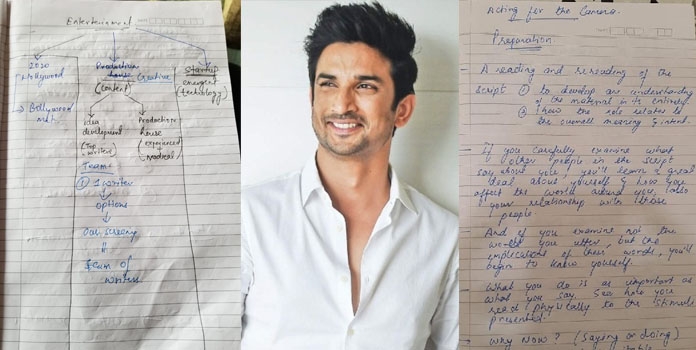 Entertainment
2020
Hollywood
Bollywood
Production
house
(content)
Creative
Startup
emergent
technology
idea
development
(Top
writer)
Production
house
experienced
Team
① 1 writer
options
Our screeny
Team of
writers
Acting for the Camera.
Preparation
A reading and rereading of the
script ① to develop an understanding
of the material in its entirety
② how the role relates to
the overall meaning & intent.
If you carefully examine what
other people in the script
say about you, you'll learn a great
deal about yourself & how you
affect the world around you,
your relationship with those
people.
And if you examine not the
words you utter, but the
implications of these words, you'll
begin to know yourself.
What you do is as important as
what you say. See how you
react physically to the stimuli
presented.
Why Now? (Saying or doing)